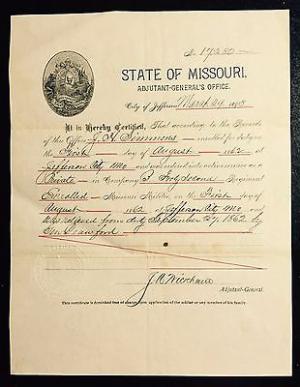 STATE OF MISSOURI.
ADJUTANT-GENERAL'S OFFICE.
City of Jefferson, March 24
It is Hereby Certified, That according to the Records
of this Office J. H. Simmons enrolled for duty on
the First day of August 1862 at
Jefferson City Mo and was ordered into active service as a
Private in Company I Forty Second Regiment
Enrolled Missouri Militia, on the First day of
August 1862, at Jefferson City Mo. and
was relieved from duty September 27, 1862, by
Gen.
Adjutant-General.
This certificate is furnished free of charge upon application of the soldier or any member of his family.